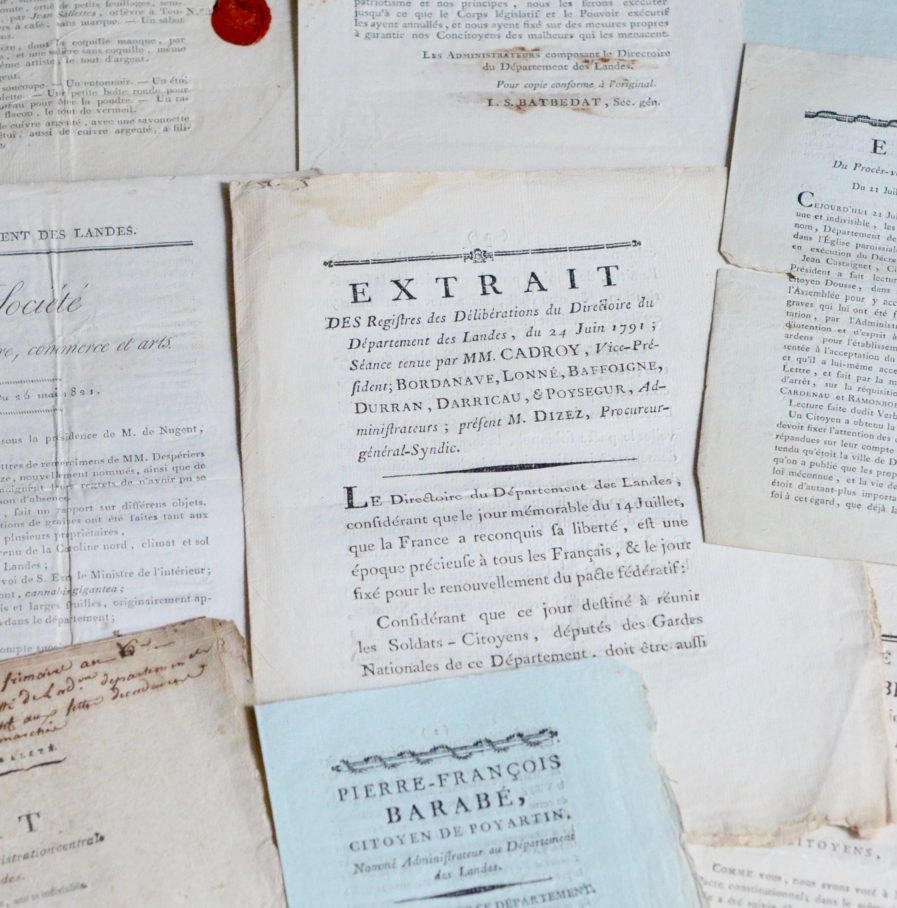 par Jean Sallettes, orfèvre à Tou-
à cafés, sans marque. — Un sabot
dont la coquille manque, par
et une salière sans coquille, même
même artiste, le tout d'argent.
soucoupe. — Un entonnoir. — Un étui
Une petite boîte ronde pour
pour ôter la poudre. — Un
flacon, le tout de vermeil.
de cuivre argenté, avec une savonnette
étui, aussi de cuivre argenté, à
patriotisme et nos principes, nous les ferons exécuter
jusqu'à ce que le Corps législatif et le Pouvoir exécutif
les ayent annullés, et nous ayent fixé sur des mesures propres
à garantir nos Concitoyens des malheurs qui les menacent.
LES ADMINISTRATEURS composant le Directoire
du Département des Landes.
Pour copie conforme à l'original.
I. S. BATBEDAT, Sec. gén.
ENT DES LANDES.
Société
re, commerce et arts.
du 26 mai 1821.
sous la présidence de M. de Nugent,
lettres de remercimens de MM. Despériers
nouvellement nommés, ainsi que de
regrets de n'avoir pu se
d'absence.
fait un rapport sur différens objets.
de graines ont été faites tant aux
plusieurs propriétaires,
venu de la Caroline nord, climat et sol
Landes;
voi de S. Exc. le Ministre de l'intérieur;
cannabis gigantea;
et larges feuilles, originairement ap-
dans le département;
EXTRAIT
DES Regiſtres des Délibérations du Directoire du
Département des Landes, du 24 Juin 1791;
Séance tenue par MM. CADROY, Vice-Pré-
ſident; BORDANAVE, LONNÉ, BAFFOIGNE,
DURRAN, DARRICAU, & POYSEGUR, Ad-
miniſtrateurs; préſent M. DIZEZ, Procureur-
général-Syndic.
LE Directoire du Département des Landes,
conſidérant que le jour mémorable du 14 Juillet,
que la France a reconquis ſa liberté, eſt une
époque précieuſe à tous les Français, & le jour
fixé pour le renouvellement du pacte fédératif:
Conſidérant que ce jour deſtiné à réunir
les Soldats-Citoyens, députés des Gardes
Nationales de ce Département, doit être auſſi
E
Du Procès-v
Du 21 Juil
CEJOURD'HUI 21 Jui
une et indivisible, les
nom, Département de
dans l'Église paroissial
en exécution du Décre
Jean Castaignet, Ci
Président a fait lectur
Citoyen Dousse, dans
l'Assemblée pour y acc
graves qui lui ont été f
tation, par l'Administr
d'intention et d'esprit à
ardens pour l'établissem
sentée à l'acceptation du
et qu'il a lui-même acce
Lettre, et fait par la m
d'arrêt, sur la réquisiti
CARDENAU et RAMONBOR
Lecture faite dudit Verb
Un Citoyen a obtenu la
devoir fixer l'attention des
répandues sur leur compte
tendu qu'étoit la ville de D
qu'on a publié que les prop
loi méconnue, et la vie de
étoit d'autant-plus importan
foi à cet égard, que déjà la
T
centrale
PIERRE-FRANÇOIS
BARABÉ,
CITOYEN DE POYARTIN,
Nommé Administrateur au Département
des Landes.
DÉPARTEMENT.
CITOYENS,
COMME vous, nous avons voté à l
acte constitutionnel; dans le même